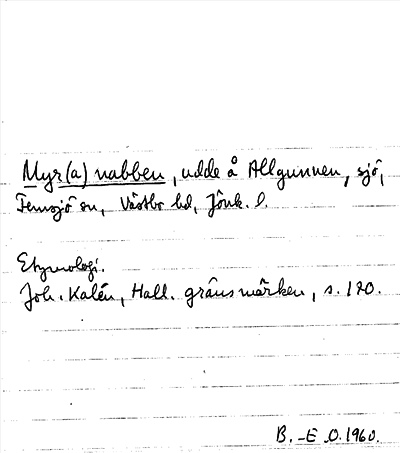 Myr(a)nabben, udde å Allgunnen, sjö,
Femsjö sn, Västbo hd, Jönk. l.
Etymologi.
Joh. Kalén, Hall. gränsmärken, s. 120.
B.-E O. 1960.